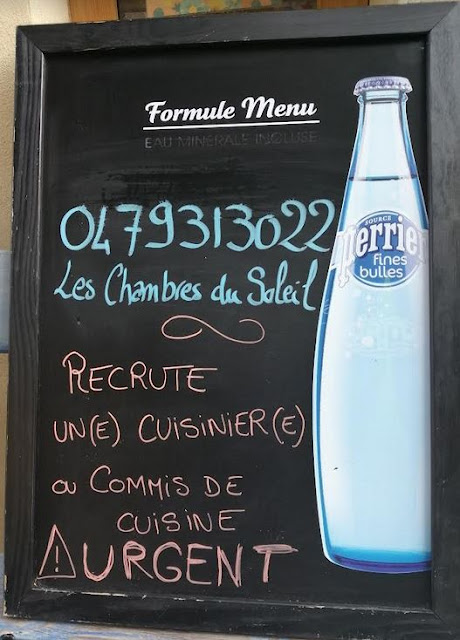 Formule Menu
EAU MINÉRALE INCLUSE
0479313022
Les Chambres du Soleil
SOURCE
perrier
fines
bulles
RECRUTE
UN(E) CUISINIER(E)
OU COMMIS DE
CUISINE
⚠ URGENT